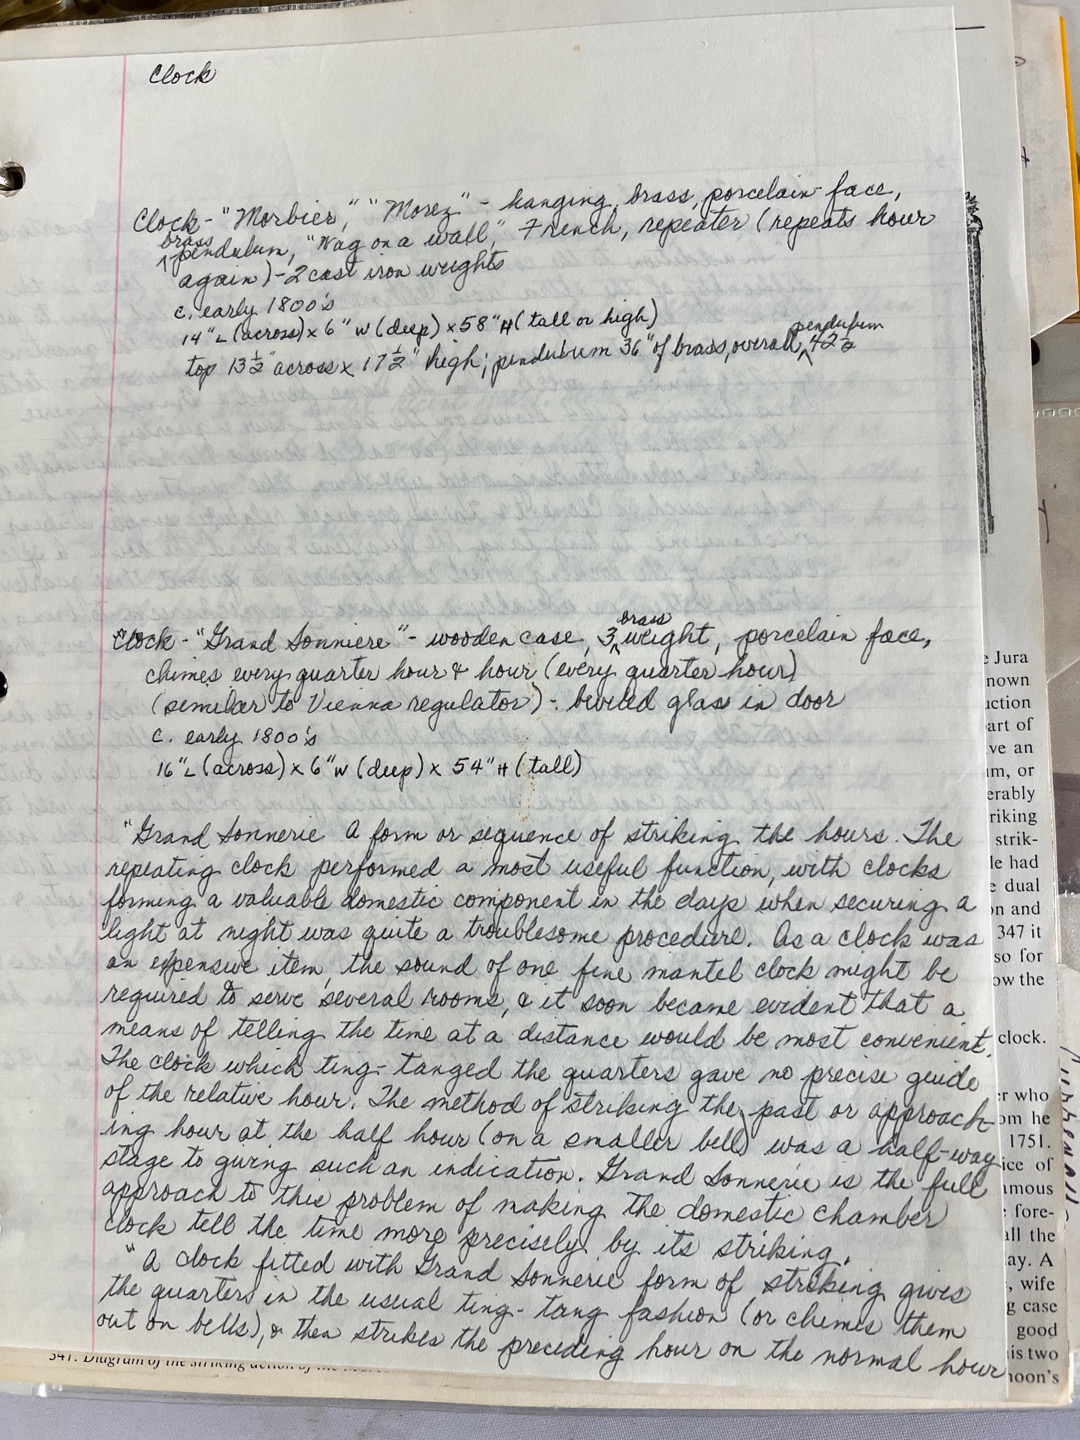 Clock
Clock - "Morbier," "Morez" - hanging, brass, porcelain face,
brass
^pendulum, "Wag on a wall," French, repeater (repeats hour
again) - 2 cast iron weights
c. early 1800's
14" L (across) x 6" W (deep) x 58" H (tall or high)
pendulum
top 13 1/2" across x 17 1/2" high; pendulum 36" of brass, overall ^ 42 1/2
brass
Clock - "Grand Sonniere" - wooden case, 3 ^ weight, porcelain face,
chimes every quarter hour & hour (every quarter hour)
(similar to Vienna regulator) - beveled glass in door
c. early 1800's
16" L (across) x 6" W (deep) x 54" H (tall)
"Grand Sonnerie A form or sequence of striking the hours. The
repeating clock performed a most useful function, with clocks
forming a valuable domestic component in the days when securing a
light at night was quite a troublesome procedure. As a clock was
an expensive item, the sound of one fine mantel clock might be
required to serve several rooms, & it soon became evident that a
means of telling the time at a distance would be most convenient.
The clock which ting-tanged the quarters gave no precise guide
of the relative hour. The method of striking the past or approach-
ing hour at the half hour (on a smaller bell) was a half-way
stage to giving such an indication. Grand Sonnerie is the full
approach to this problem of making the domestic chamber
clock tell the time more precisely by its striking.
"A clock fitted with Grand Sonnerie form of striking gives
the quarters in the usual ting-tang fashion (or chimes them
out on bells), & then strikes the preceding hour on the normal hour
e Jura
nown
uction
art of
ve an
um, or
erably
riking
strik-
le had
e dual
on and
347 it
so for
ow the
clock.
er who
om he
1751.
ice of
amous
fore-
all the
ay. A
, wife
g case
good
is two
noon's
341. Diagram of the striking action of the